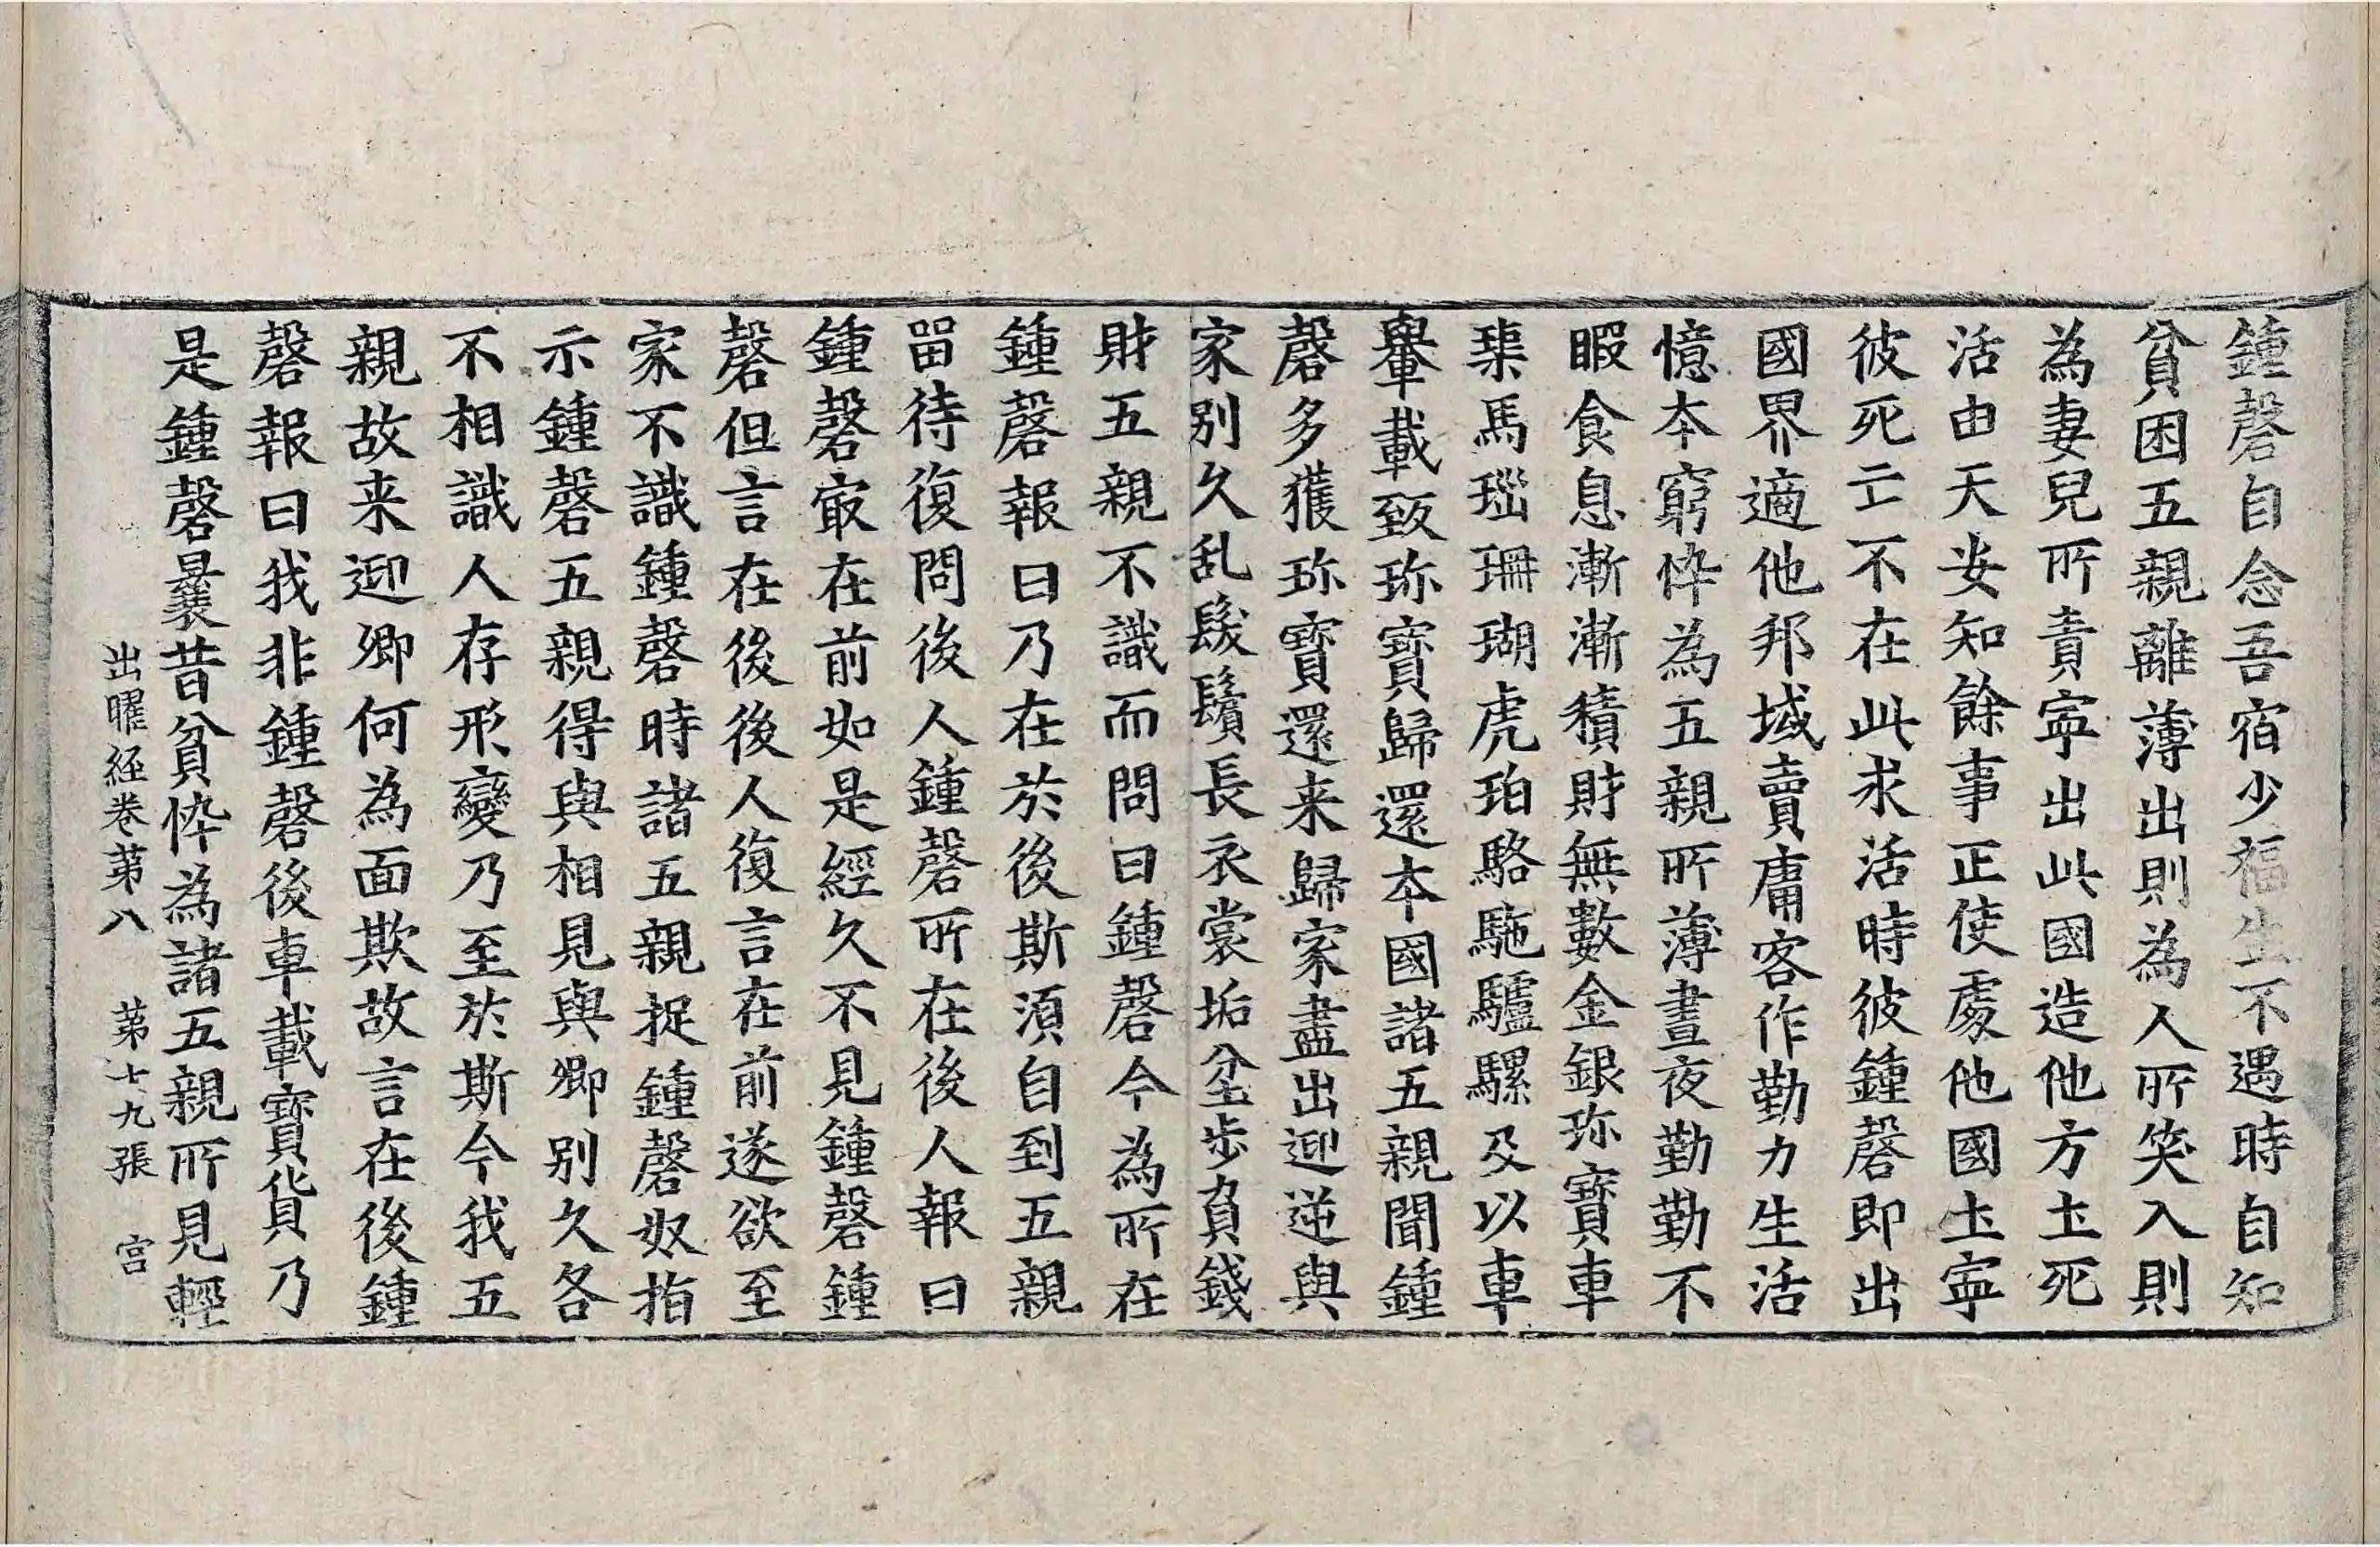 鍾磬自念吾宿少福生不遇時自知
貧困五親離薄出則為人所笑入則
為妻兒所責寜出此國造他方土死
活由天安知餘事正使處他國土寜
彼死亡不在此求活時彼鍾磬即出
國界適他邦域賣庸客作勤力生活
憶本窮忰為五親所薄晝夜勤勤不
暇食息漸漸積財無數金銀珎寶車
𤦲馬瑙珊瑚虎珀駱駞驢騾及以車
轝載致珎寶歸還本國諸五親聞鍾
磬多獲珎寶還来歸家盡出迎逆與
家别久乱髮鬚長衣裳垢坌步負錢
財五親不識而問曰鍾磬今為所在
鍾磬報曰乃在於後斯湏自到五親
留待復問後人鍾磬所在後人報曰
鍾磬㝡在前如是經久不見鍾磬鍾
磬但言在後後人復言在前遂欲至
家不識鍾磬時諸五親捉鍾磬奴指
示鍾磬五親得與相見與卿别久各
不相識人存形變乃至於斯今我五
親故来迎卿何為面欺故言在後鍾
磬報曰我非鍾磬後車載寶貨乃
是鍾磬曩昔貧忰為諸五親所見輕
出曜経卷苐八 苐十九張 宫